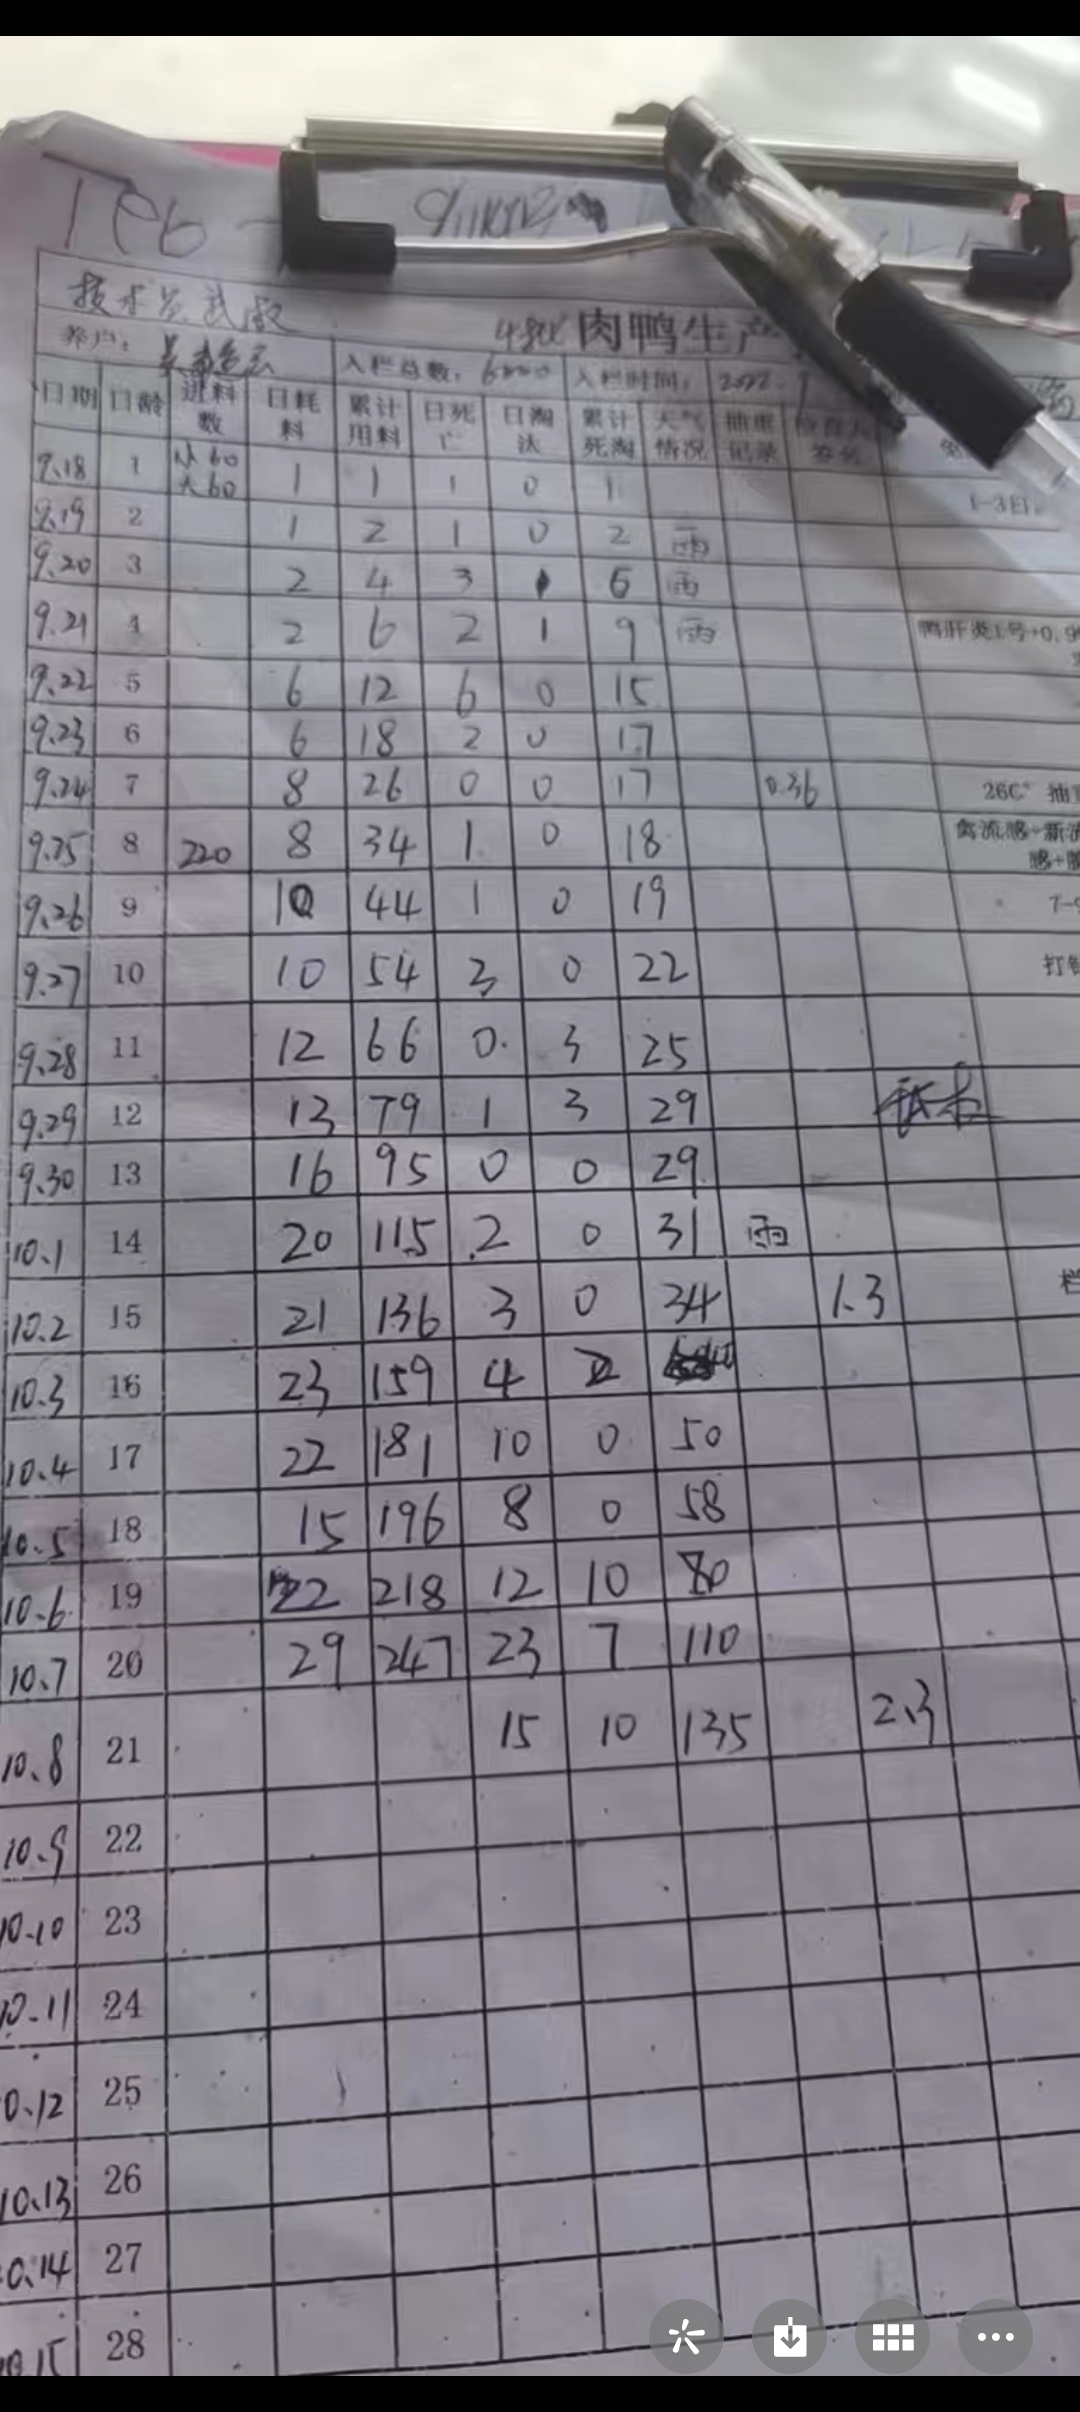 技术员
4批 肉鸭生产
养户： 入栏总数：6000 入栏时间：2022.9
日期 日龄 进料数 日耗料 累计用料 日死亡 日淘汰 累计死淘 天气情况 抽重记录
9.18 1 小60 大60 1 1 1 0 1 1-3日
9.19 2 1 2 1 0 2 雨
9.20 3 2 4 3 1 6 雨
9.21 4 2 6 2 1 9 雨 鸭肝炎1号+0.9
9.22 5 6 12 6 0 15
9.23 6 6 18 2 0 17
9.24 7 8 26 0 0 17 0.36 26C° 抽
9.25 8 220 8 34 1 0 18 禽流感+新流感+
9.26 9 10 44 1 0 19 7-
9.27 10 10 54 3 0 22 打
9.28 11 12 66 0 3 25
9.29 12 13 79 1 3 29
9.30 13 16 95 0 0 29
10.1 14 20 115 2 0 31 雨
10.2 15 21 136 3 0 34 1.3 栏
10.3 16 23 159 4 2 40
10.4 17 22 181 10 0 50
10.5 18 15 196 8 0 58
10.6 19 22 218 12 10 80
10.7 20 29 247 23 7 110
10.8 21 15 10 135 2.3
10.9 22
10.10 23
10.11 24
0.12 25
10.13 26
0.14 27
10.15 28